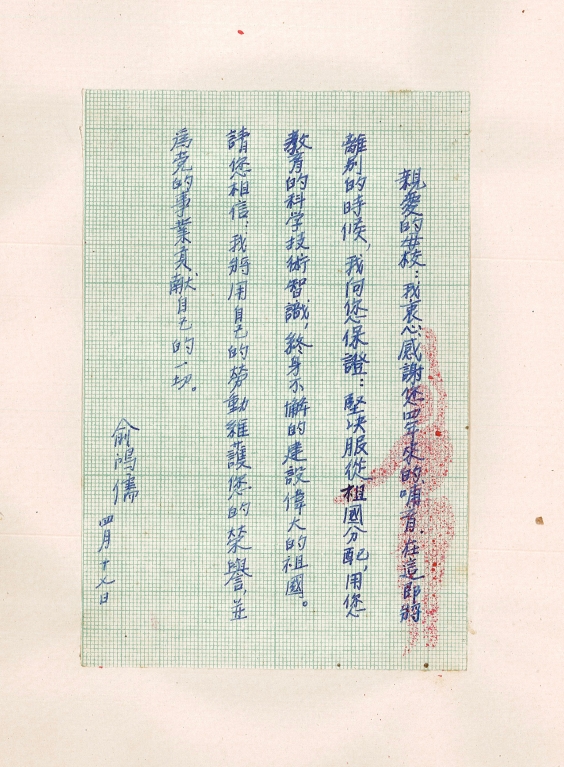 親愛的母校：我衷心感謝您四年來的哺育．在這即將
離别的時候，我向您保證：堅決服從祖國分配，用您
教育的科学技術智識，終身不懈的建設偉大的祖國。
請您相信：我將用自己的勞動維護您的榮譽，並
爲党的事業貢献自己的一切。
俞鴻儒
四月十七日